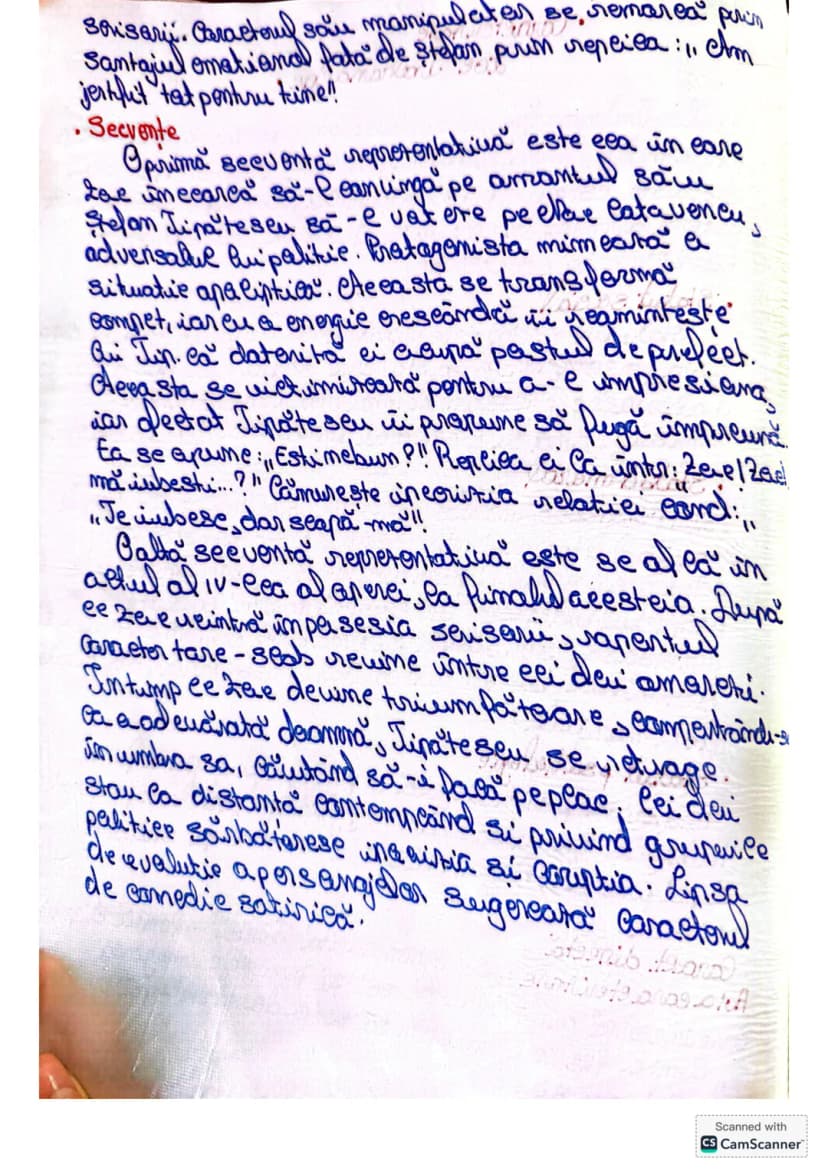 scrisorii. Caracterul său manipulator se remarcă prin
șantajul emoțional față de Ștefan prin replica: „Am
jertfit tot pentru tine!"
• Secvențe
O primă secvență reprezentativă este cea în care
Zoe încearcă să-l convingă pe amantul său
Ștefan Tipătescu să-l voteze pe Nae Cațavencu,
adversarul lui politic. Protagonista mimează o
situație apocaliptică. Aceasta se transformă
complet, iar cu o energie crescândă îi reamintește
lui Tip. că datorită ei ocupă postul de prefect.
Aceasta se victimizează pentru a-l impresiona,
iar Tipătescu îi propune să fugă împreună.
Ea se opune: „Ești nebun?!" Replica ei la într: Zoe! Zoe!
mă iubești...?" Lămurește ipocrizia relației când: „
„Te iubesc, dar scapă-mă"!
O altă secvență reprezentativă este se află în
actul al IV-lea al operei, la finalul acesteia. După
ce Zoe reintră în posesia scrisorii, raportul
caracter tare-slab revine între cei doi amorezi.
În timp ce Zoe devine triumfătoare, comportându-se
ca o adevărată doamnă, Tipătescu se retrage
în umbra sa, căutând să-i facă pe plac. Cei doi
stau la distanță contemplând și privind grupurile
politice sărbătoresc ipocrizia și corupția. Lipsa
de evoluție a personajelor sugerează caracterul
de comedie satirică.
Scanned with
CS CamScanner